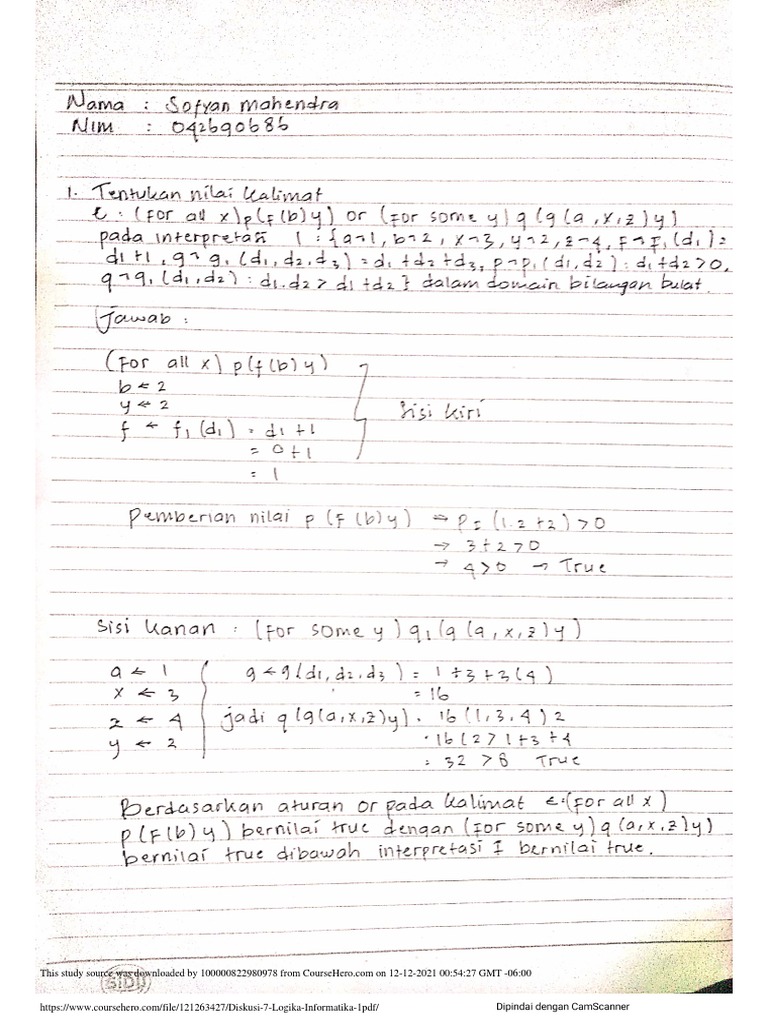 Nama : Sofyan Mahendra
Nim : 042690686
1. Tentukan nilai kalimat
E : (For all x) p(f(b) y) or (for some y) q (g (a, x, z) y)
pada interpretasi I : {a→1, b→2, x→3, y→2, z→4, f→f₁(d₁) =
d₁+1, g→g₁(d₁, d₂, d₃) = d₁+d₂+d₃, p→p₁(d₁,d₂) : d₁+d₂>0,
q→q₁(d₁,d₂) : d₁.d₂ > d₁+d₂} dalam domain bilangan bulat.
Jawab :
(For all x) p(f(b) y)
b ← 2
y ← 2
f ← f₁ (d₁) = d₁ + 1
= 0+1
= 1
Sisi kiri
Pemberian nilai p (f (b) y) → p = (1.2 + 2) > 0
→ 3+2 > 0
→ 4 > 0 → True
Sisi kanan : (for some y) q₁(g (a, x, z) y)
a ← 1
x ← 3
z ← 4
y ← 2
g ← g(d₁, d₂, d₃) = 1 + 3 + 3(4)
= 16
jadi q (g(a,x,z)y) . 16 (1, 3, 4) 2
. 16 (2 > 1+3+4
= 32 > 8 True
Berdasarkan aturan or pada kalimat E : (for all x)
p (f(b) y) bernilai true dengan (for some y) q (a,x,z)y)
bernilai true dibawah interpretasi I bernilai true.
SIDU
This study source was downloaded by 100000822980978 from CourseHero.com on 12-12-2021 00:54:27 GMT -06:00
https://www.coursehero.com/file/121263427/Diskusi-7-Logika-Informatika-1pdf/
Dipindai dengan CamScanner